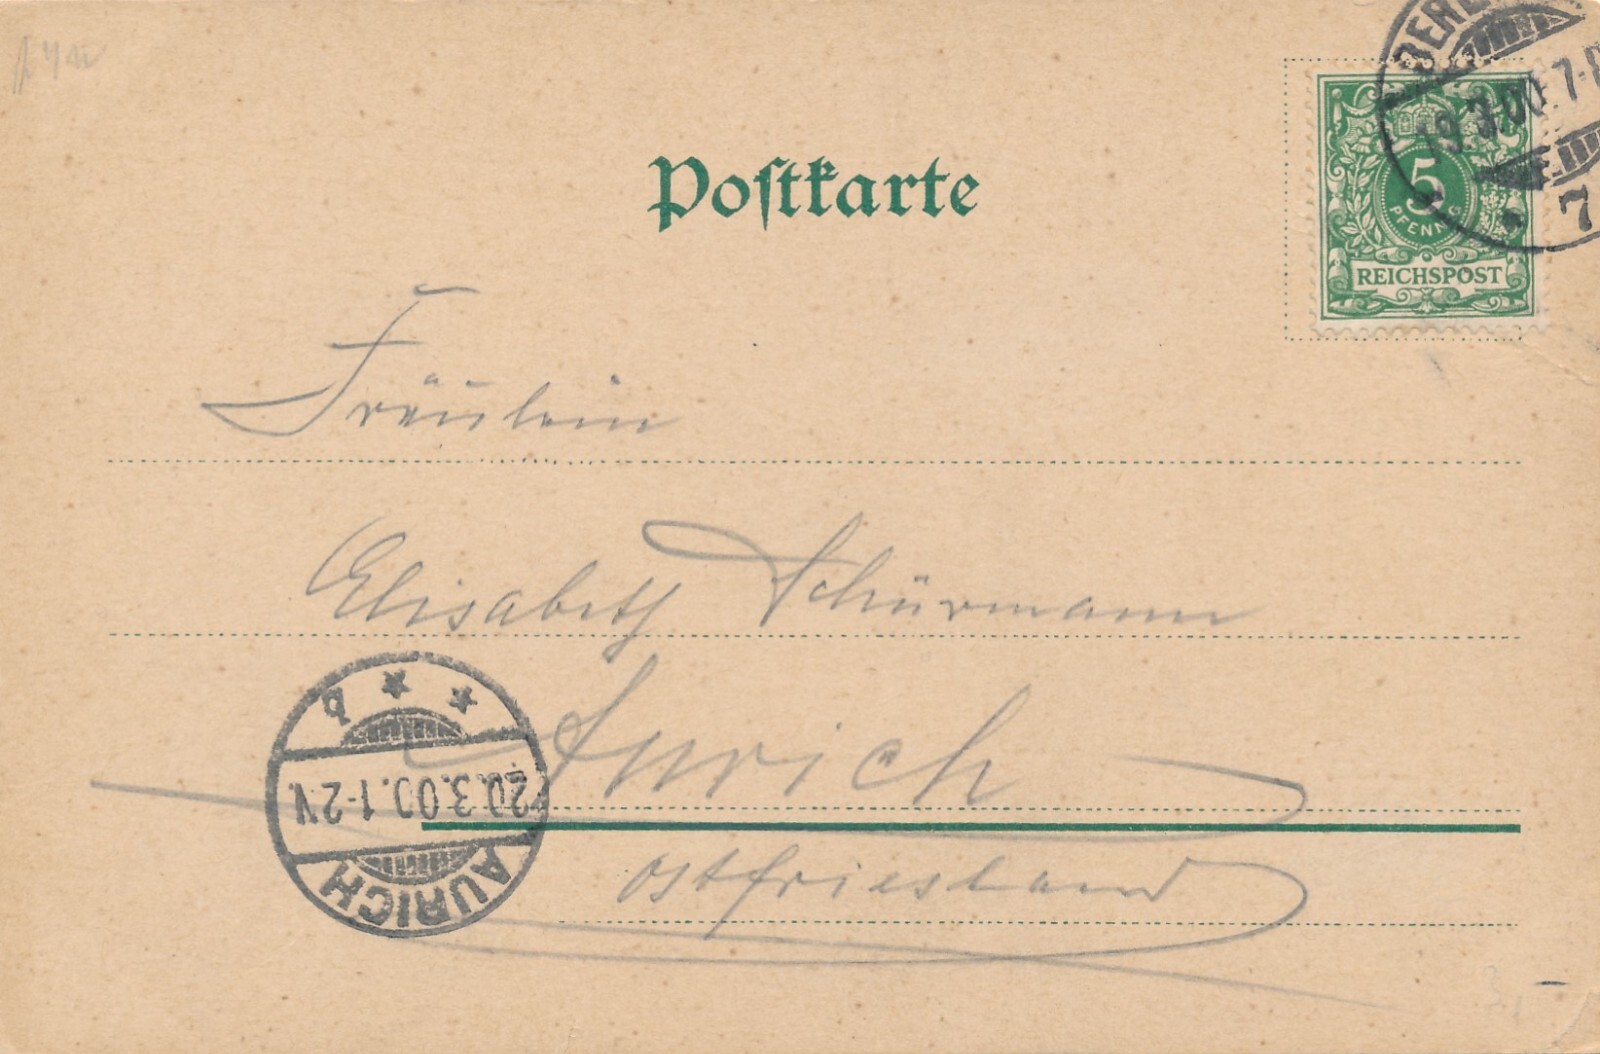 Postkarte
19.3.00.7-8
7
5
PFENNIG
REICHSPOST
Fräulein
Elisabeth Schürmann
Aurich
Ostfriesland
AURICH
20.3.00.1-2V.
* *